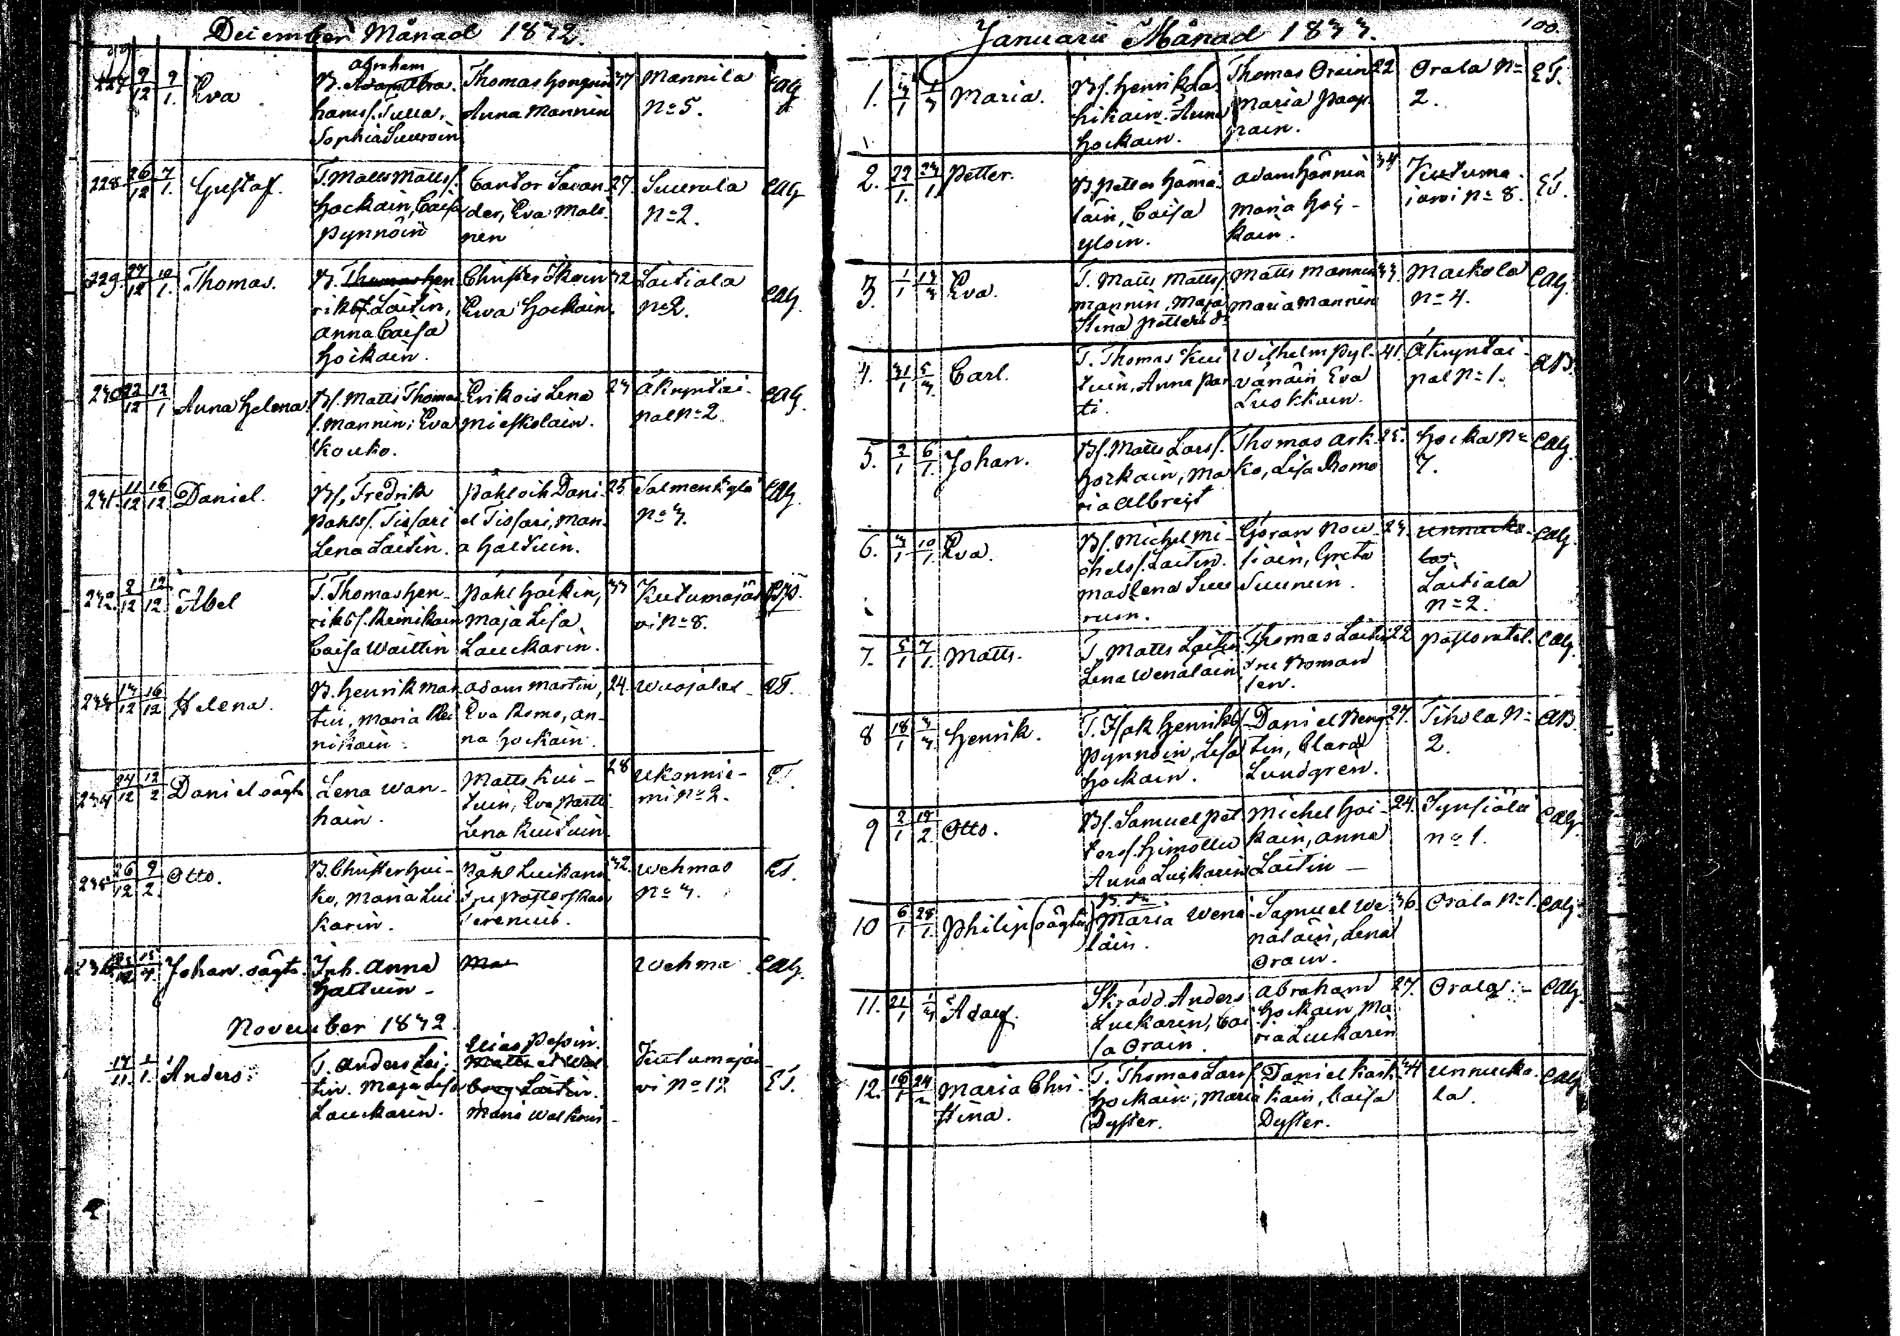 99
December Månad 1832.
227 9/12 9/1. Eva
Abraham
B. Adam Abra-
hams. Tulla,
Sophia Suuroin
Thomas
Anna Mannin
37
Mannila
No 5.
CAG
228 26/12 7/1. Gustaf.
T. Matts Matts s.
Hoekain, Caisa
Pynnöin
Cantor Savan-
der, Eva Mali-
nen
27.
Suurula
No 2.
CAG
229. 27/12 10/1. Thomas.
B. Thomas Hen
riks s. Laitin,
Anna Caisa
Hoikain.
Christer Ikain
Ewa Hoekain.
32
Laitiala
No 2.
CAG.
230 22/12 12/1 Anna Helena
Bs. Matts Thomas
s. Mannin, Eva
Kouko.
Erik ois Lena
Mieskolain.
23
Åkyntai-
pal No 2
CAG.
231. 11/12 16/12 Daniel.
Bs. Fredrik
Påhls s. Tissari
Lena Laitin.
Påhl och Dani-
el Tissari, Mari-
a Haltuin.
25
Salmenkylä
No 3.
CAG.
232. 2/12 12/12. Abel
T. Thomas Hen-
riks s. Reinikain
Caisa Waittin
Påhl Haikin,
Maja Lisa
Lauckarin.
33
Kutumajär
vi No 8.
233 13/12 16/12 Helena.
B. Henrik Mar
tin, Maria Rei
nikain.
Adam Martin,
Eva Romo, An-
na Hockain.
24.
Wuojalax
ET.
234 24/12 12/2 Daniel oägta
Lena Wan-
hain.
Matts Kui-
tuin, Eva Partti
Lena Kuituin.
28
Ukonnie-
mi No 2.
ET.
235 26/12 9/2. Otto.
B. Christer Hui-
ko, Maria Lui
karin.
Påhl Luikarin
Fru Prosterskan
Terenius.
32.
Wehmas
No 3.
ET.
236 Johan. oägta.
Inh. Anna
Hattuin
Ma
Wehma
CAG.
November 1832.
17/11. 1/1. Anders.
T. Anders Lai-
tin. Maja Lisa
Lauckarin.
Elias Pesoin.
Laitin.
Maria Walkoin
Kutumajär
vi No 12
ET.
Januarii Månad 1833.
100.
1. 3/1 1/3 Maria.
Bs. Henrik La
hikain. Anna
Hockain.
Thomas Orain
Maria Paap
pain.
22
Orala No
2.
ET.
2. 22/1. 23/1 Petter.
B. Petter Hämä-
läin, Caisa
Ylöin.
Adam Hännin
Maria Hoi-
kain.
34
Kutuma-
järvi No 8.
ET.
3. 1/1 13/3 Eva.
T. Matts Matts s.
Mannin, Maja
Stina Petters Dr
Matts Mannin
Maria Mannin
33
Markola
No 4.
CAG.
4. 31/1 5/3 Carl.
T. Thomas Kui
tuin, Anna Par
ti.
Wilhelm Pyl-
vänäin, Eva
Luokkain.
41.
Åkyntai-
pal No 1.
AB.
5. 2/1 6/1. Johan.
Bs. Matts Lars s.
Hockain, Ma
ria Albreigt
Thomas Ark-
ko, Lisa Romo
25.
Hocka No
7.
CAG.
6. 3/1 10/1. Eva.
Bs. Michel Mi-
chels s. Laitin.
Madlena Suu
ruin.
Göran Nou
siain, Greta
Suunuin.
23.
Unnucka-
la.
Laitiala
No 2.
CAG.
7. 5/1 7/1. Matts.
T. Matts Laitin
Lena Wenäläin
Thomas Laitin
Fru Boman
sen.
22
Pastoratet.
CAG.
8 18/1 3/3 Henrik.
T. Isak Henriks s.
Pynnöin, Lisa
Hockain.
Daniel Beng-
tin, Clara
Lundgren.
27.
Tihola No
2.
AB
9 2/1 12/2 Otto.
Bs. Samuel Pet
ters s. Himottu
Anna Luikarin
Michel Hoi-
kain, Anna
Laitin
24.
Synsiälä
No 1.
CAG.
10 6/1 28/1. Philip (oägta)
B. Dr
Maria Wenä
läin.
Samuel We
näläin, Lena
Orain.
36.
Orala No 1.
CAG.
11. 21/1 1/3 Adam.
Skrädd. Anders
Luckarin, Cai
sa Orain.
Abraham
Hockain, Ma
ria Luckarin
27.
Orala.
CAG.
12. 16/1 24/2 Maria Chri
stina.
T. Thomas Lars s.
Hockain, Maria
Dyster.
Daniel Kark
kain, Caisa
Dyster.
34
Unnucka
la.
CAG